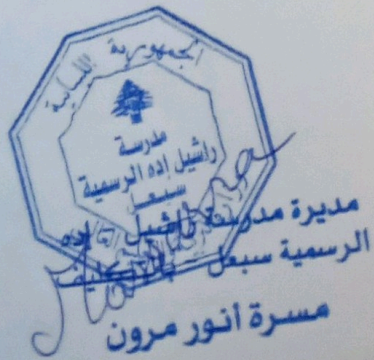 الجمهورية اللبنانية
مدرسة
راشيل إده الرسمية
سبعل
مديرة مدرسة راشيل إده
الرسمية سبعل بالتكليف
مسرة أنور مرون